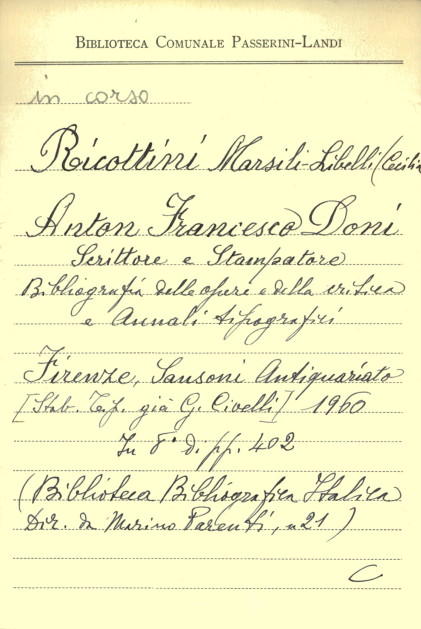 BIBLIOTECA COMUNALE PASSERINI-LANDI
in corso
Ricottini Marsili-Libelli (Cecilia
Anton Francesco Doni
Scrittore e Stampatore
Bibliografia delle opere e della critica
e Annali tipografici
Firenze, Sansoni Antiquariato
[Stab. Tip. già G. Civelli] 1960
In 8° di pp. 402
(Biblioteca Bibliografica Italica
Dir. da Marino Parenti, n 21)
C